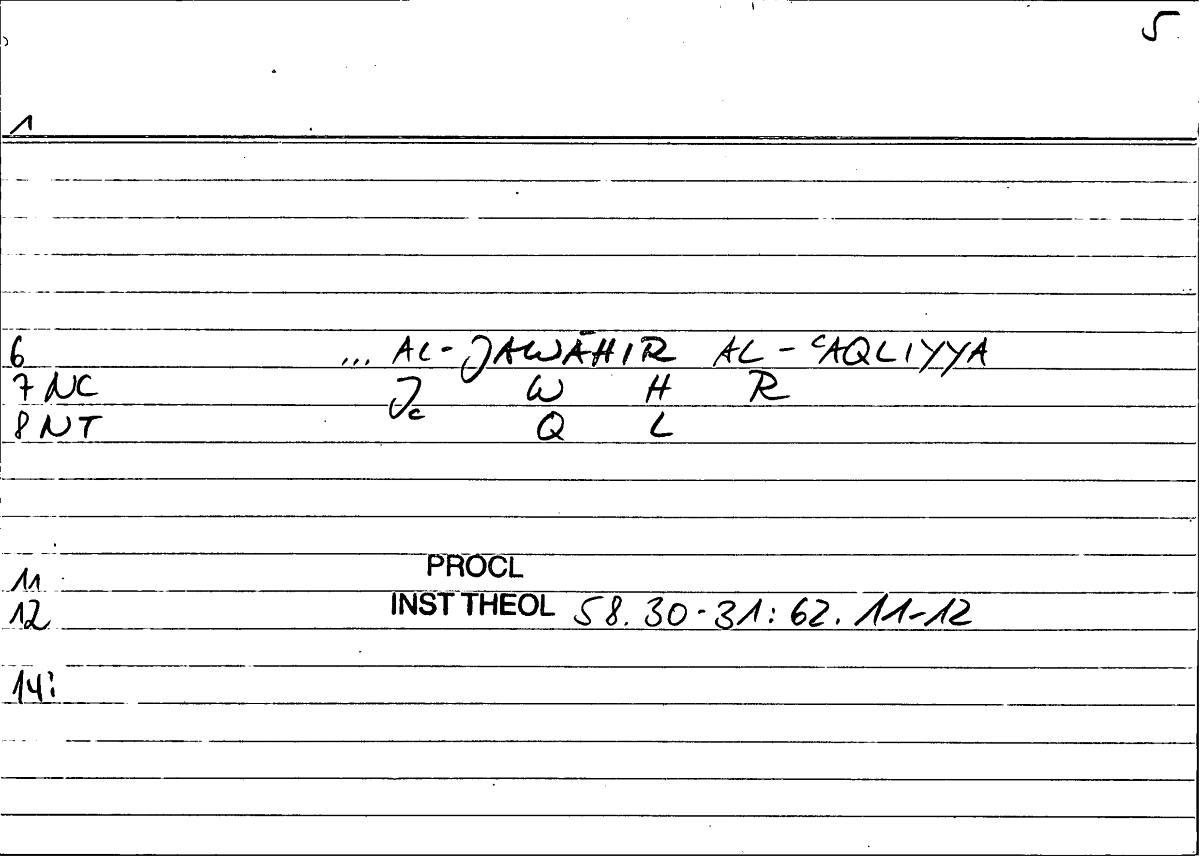 5
1
6 ... AL-JAWĀHIR AL-ʿAQLIYYA
7 NC J W H R
8 NT ʿ Q L
11 PROCL
12 INST THEOL 58.30-31: 62.11-12
14: